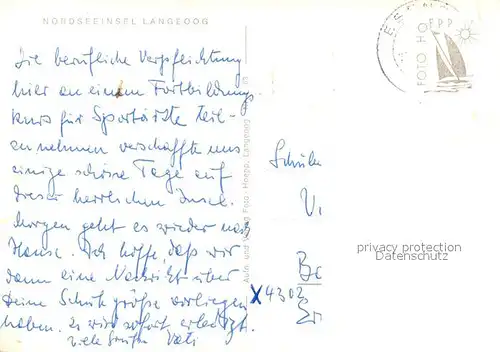 NORDSEEINSEL LANGEOOG
Die berufliche Verpflichtung
hier an einem Fortbildungs
kurs für Sportärzte teil-
zunehmen verschaffte uns
einige schöne Tage auf
dieser herrlichen Insel.
Morgen geht es wieder nach
Hause. Ich hoffe, daß wir
dann eine Nachricht über
Deine Schuhgröße vorliegen
haben. Es wird sofort erledigt.
Viele Grüße Vati
Foto - Hoepp, Langeoog
FOTO HOEPP
X 4302
privacy protection
Datenschutz